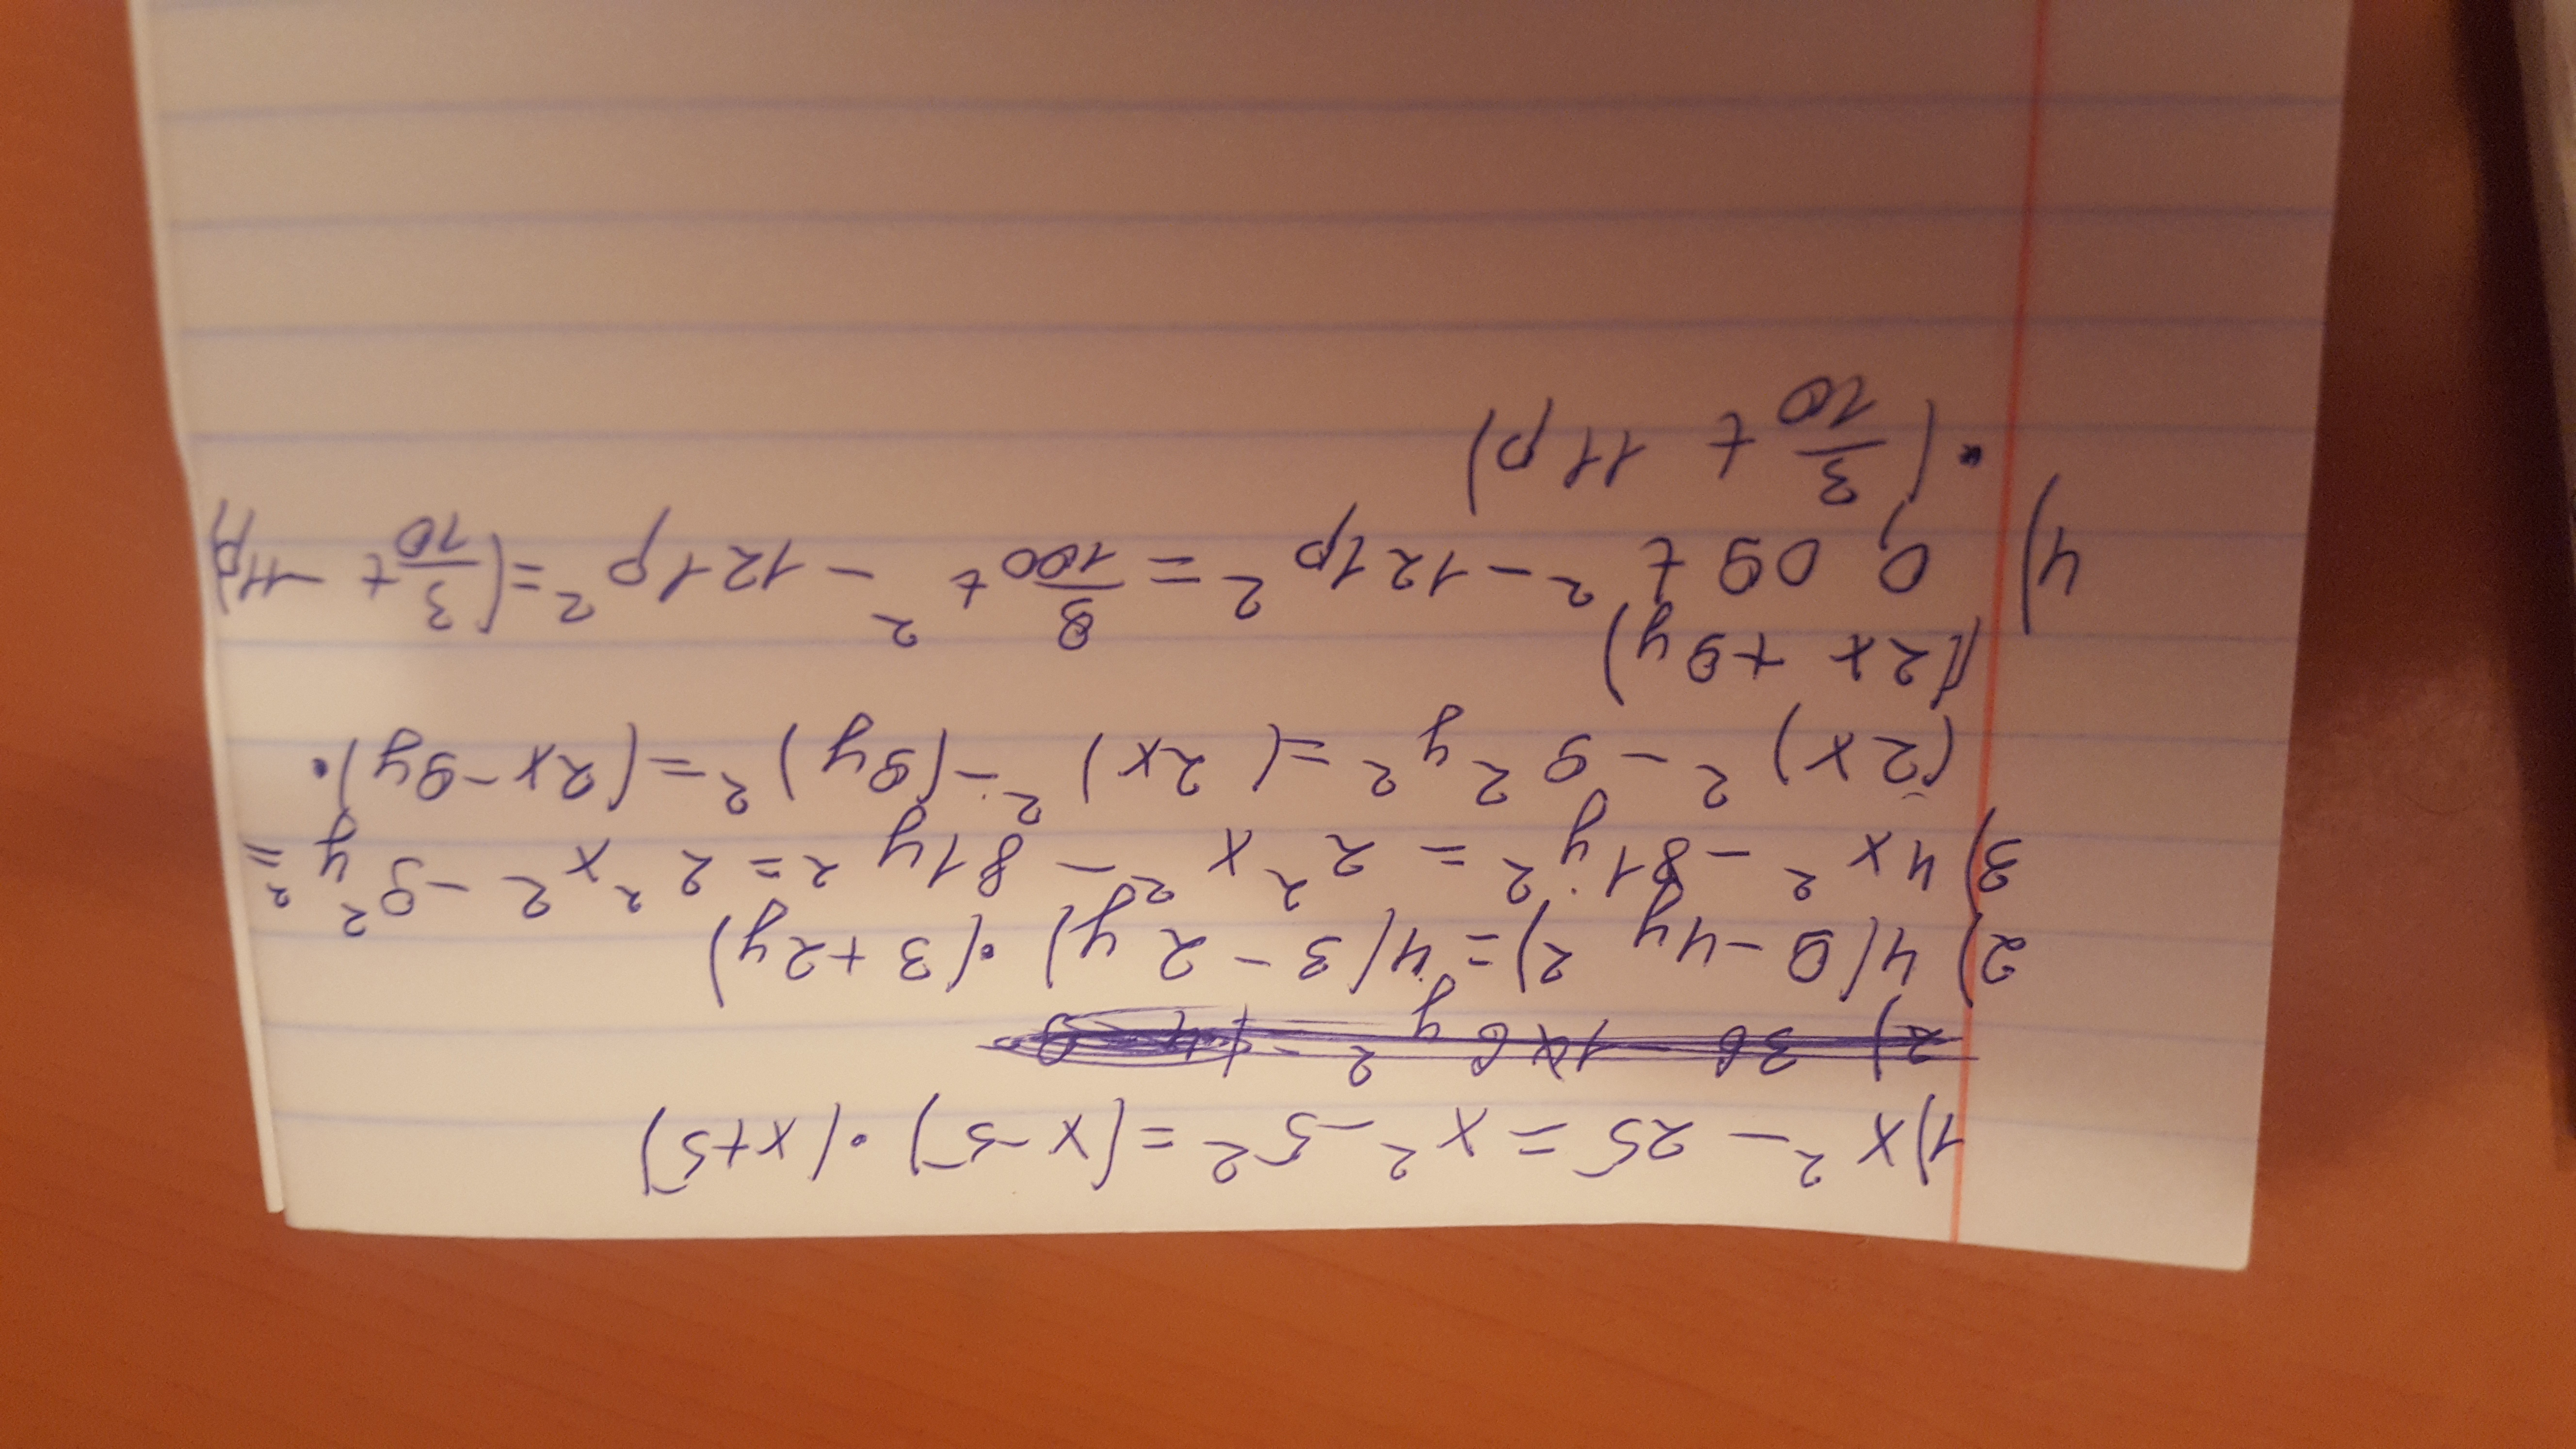 1) x² - 25 = x² - 5² = (x-5) · (x+5)
2) 36 - 16y² -
2) 4(9 - 4y²) = 4(3 - 2y) · (3 + 2y)
3) 4x² - 81y² = 2²x² - 81y² = 2²x² - 9²y² =
(2x)² - 9²y² = (2x)² - (9y)² = (2x - 9y) ·
(2x + 9y)
4) 0,09t² - 121p² = 9/100 t² - 121p² = (3/10 t - 11p)
· (3/10 t 11p)